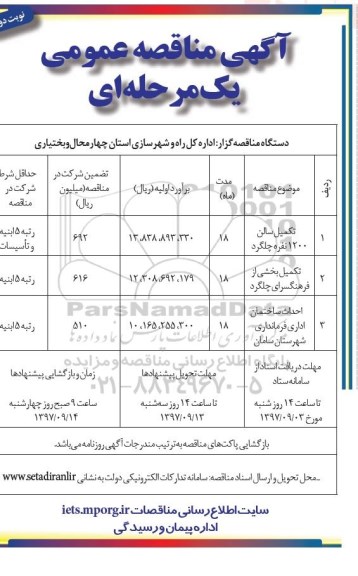 نوبت دو
آگهی مناقصه عمومی
یک‌مرحله‌ای
دستگاه مناقصه‌گزار: اداره کل راه و شهرسازی استان چهارمحال و بختیاری
ردیف
موضوع مناقصه
مدت (ماه)
برآورد اولیه (ریال)
تضمین شرکت در مناقصه (میلیون ریال)
حداقل شرط شرکت در مناقصه
۱
تکمیل سالن ۱۲۰۰ نفره چلگرد
۱۸
۱۳،۸۳۸،۸۹۳،۳۳۰
۶۹۲
رتبه ۵ ابنیه و تأسیسات
۲
تکمیل بخشی از فرهنگسرای چلگرد
۱۸
۱۲،۳۰۸،۶۹۲،۱۷۹
۶۱۶
رتبه ۵ ابنیه
۳
احداث ساختمان اداری فرمانداری شهرستان سامان
۱۸
۱۰،۱۶۵،۲۵۵،۳۰۰
۵۱۰
رتبه ۵ ابنیه
ParsNamadData
پایگاه اطلاع رسانی مناقصه و مزایده
۰۲۱-۸۸۳۴۹۶۷۰-۵
مهلت دریافت اسناد از سامانه ستاد
مهلت تحویل پیشنهادها
زمان بازگشایی پیشنهادها
تا ساعت ۱۴ روز شنبه مورخ ۱۳۹۷/۰۹/۰۳
تا ساعت ۱۴ روز سه‌شنبه ۱۳۹۷/۰۹/۱۳
ساعت ۹ صبح روز چهارشنبه ۱۳۹۷/۰۹/۱۴
بازگشایی پاکت‌های مناقصه به ترتیب مندرجات آگهی روزنامه می‌باشد.
ـ محل تحویل و ارسال اسناد مناقصه: سامانه تدارکات الکترونیکی دولت به نشانی www.setadiranIir
سایت اطلاع رسانی مناقصات iets.mporg.ir
اداره پیمان و رسیدگی